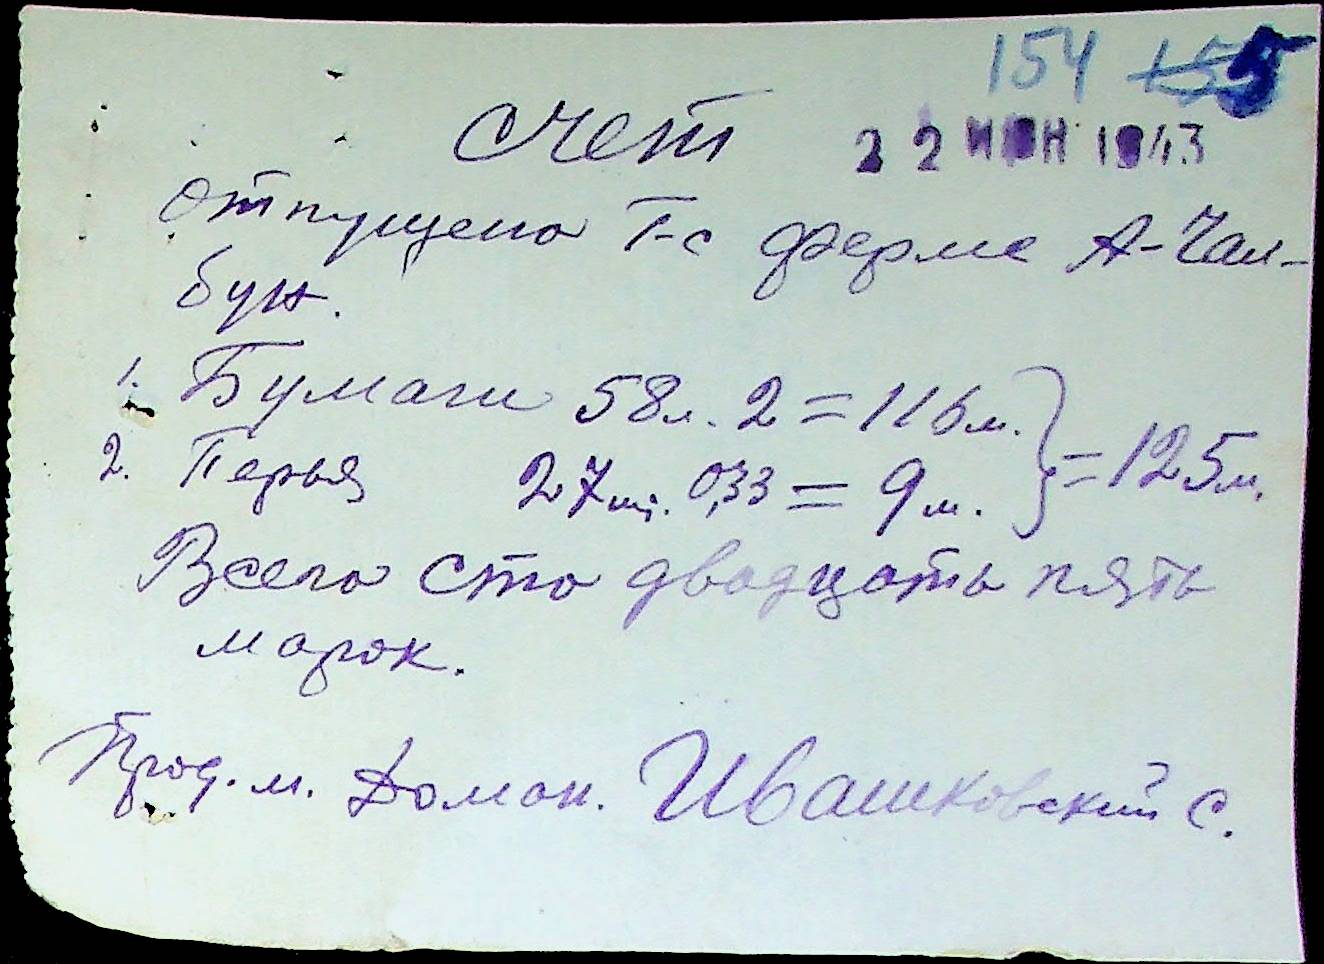 154 155
Счет 22 ИЮН 1943
Отпущено Г-с ферме А-Чал-
бун.
1. Бумаги 58л. 2 = 116м.
2. Перья 27шт. 0,33 = 9м. } = 125м.
Всего сто двадцать пять
марок.
Прод. м. Доман. Ивашковский С.